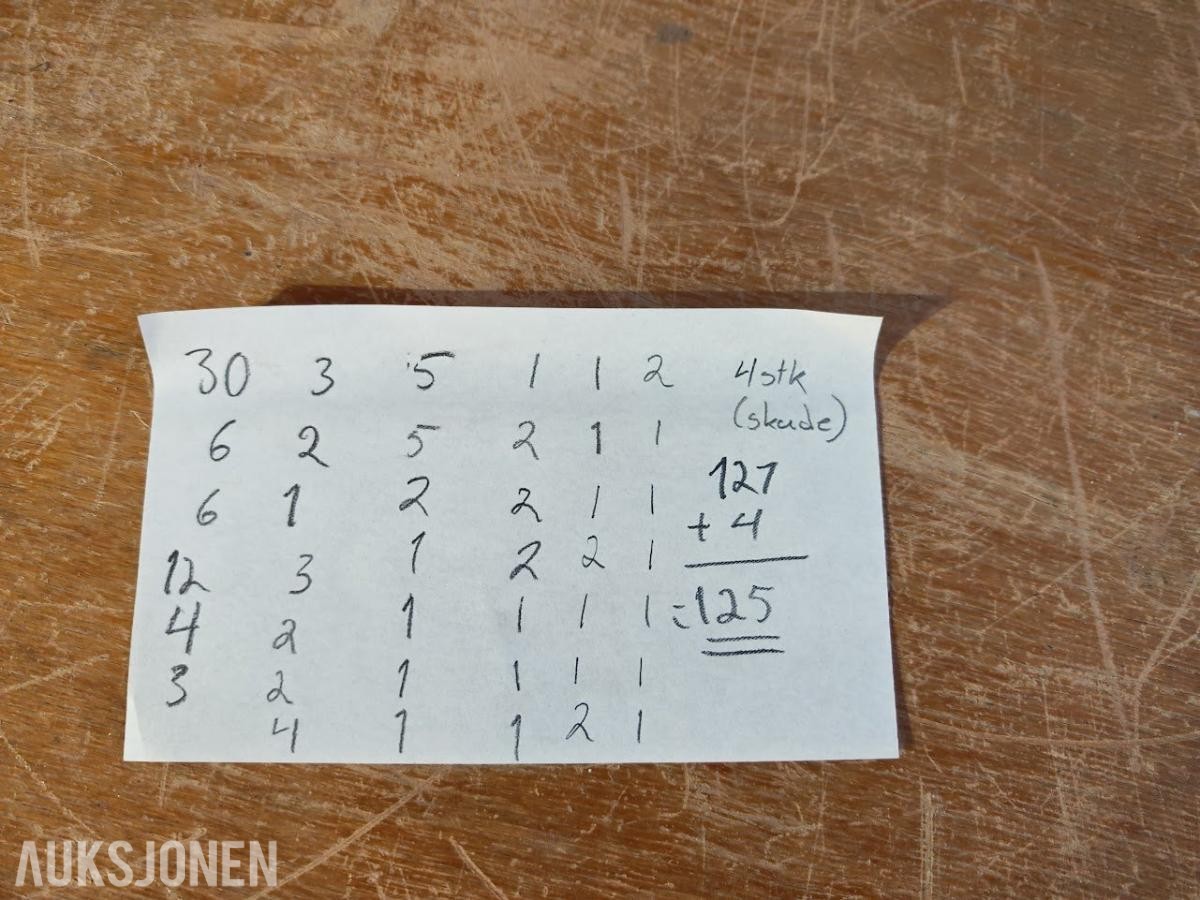 30 3 5 1 1 2 4stk
(skade)
6 2 5 2 1 1
127
6 1 2 2 1 1
+ 4
12 3 1 2 2 1
4 2 1 1 1 1 =125
3 2 1 1 1 1
4 1 1 2 1
AUKSJONEN